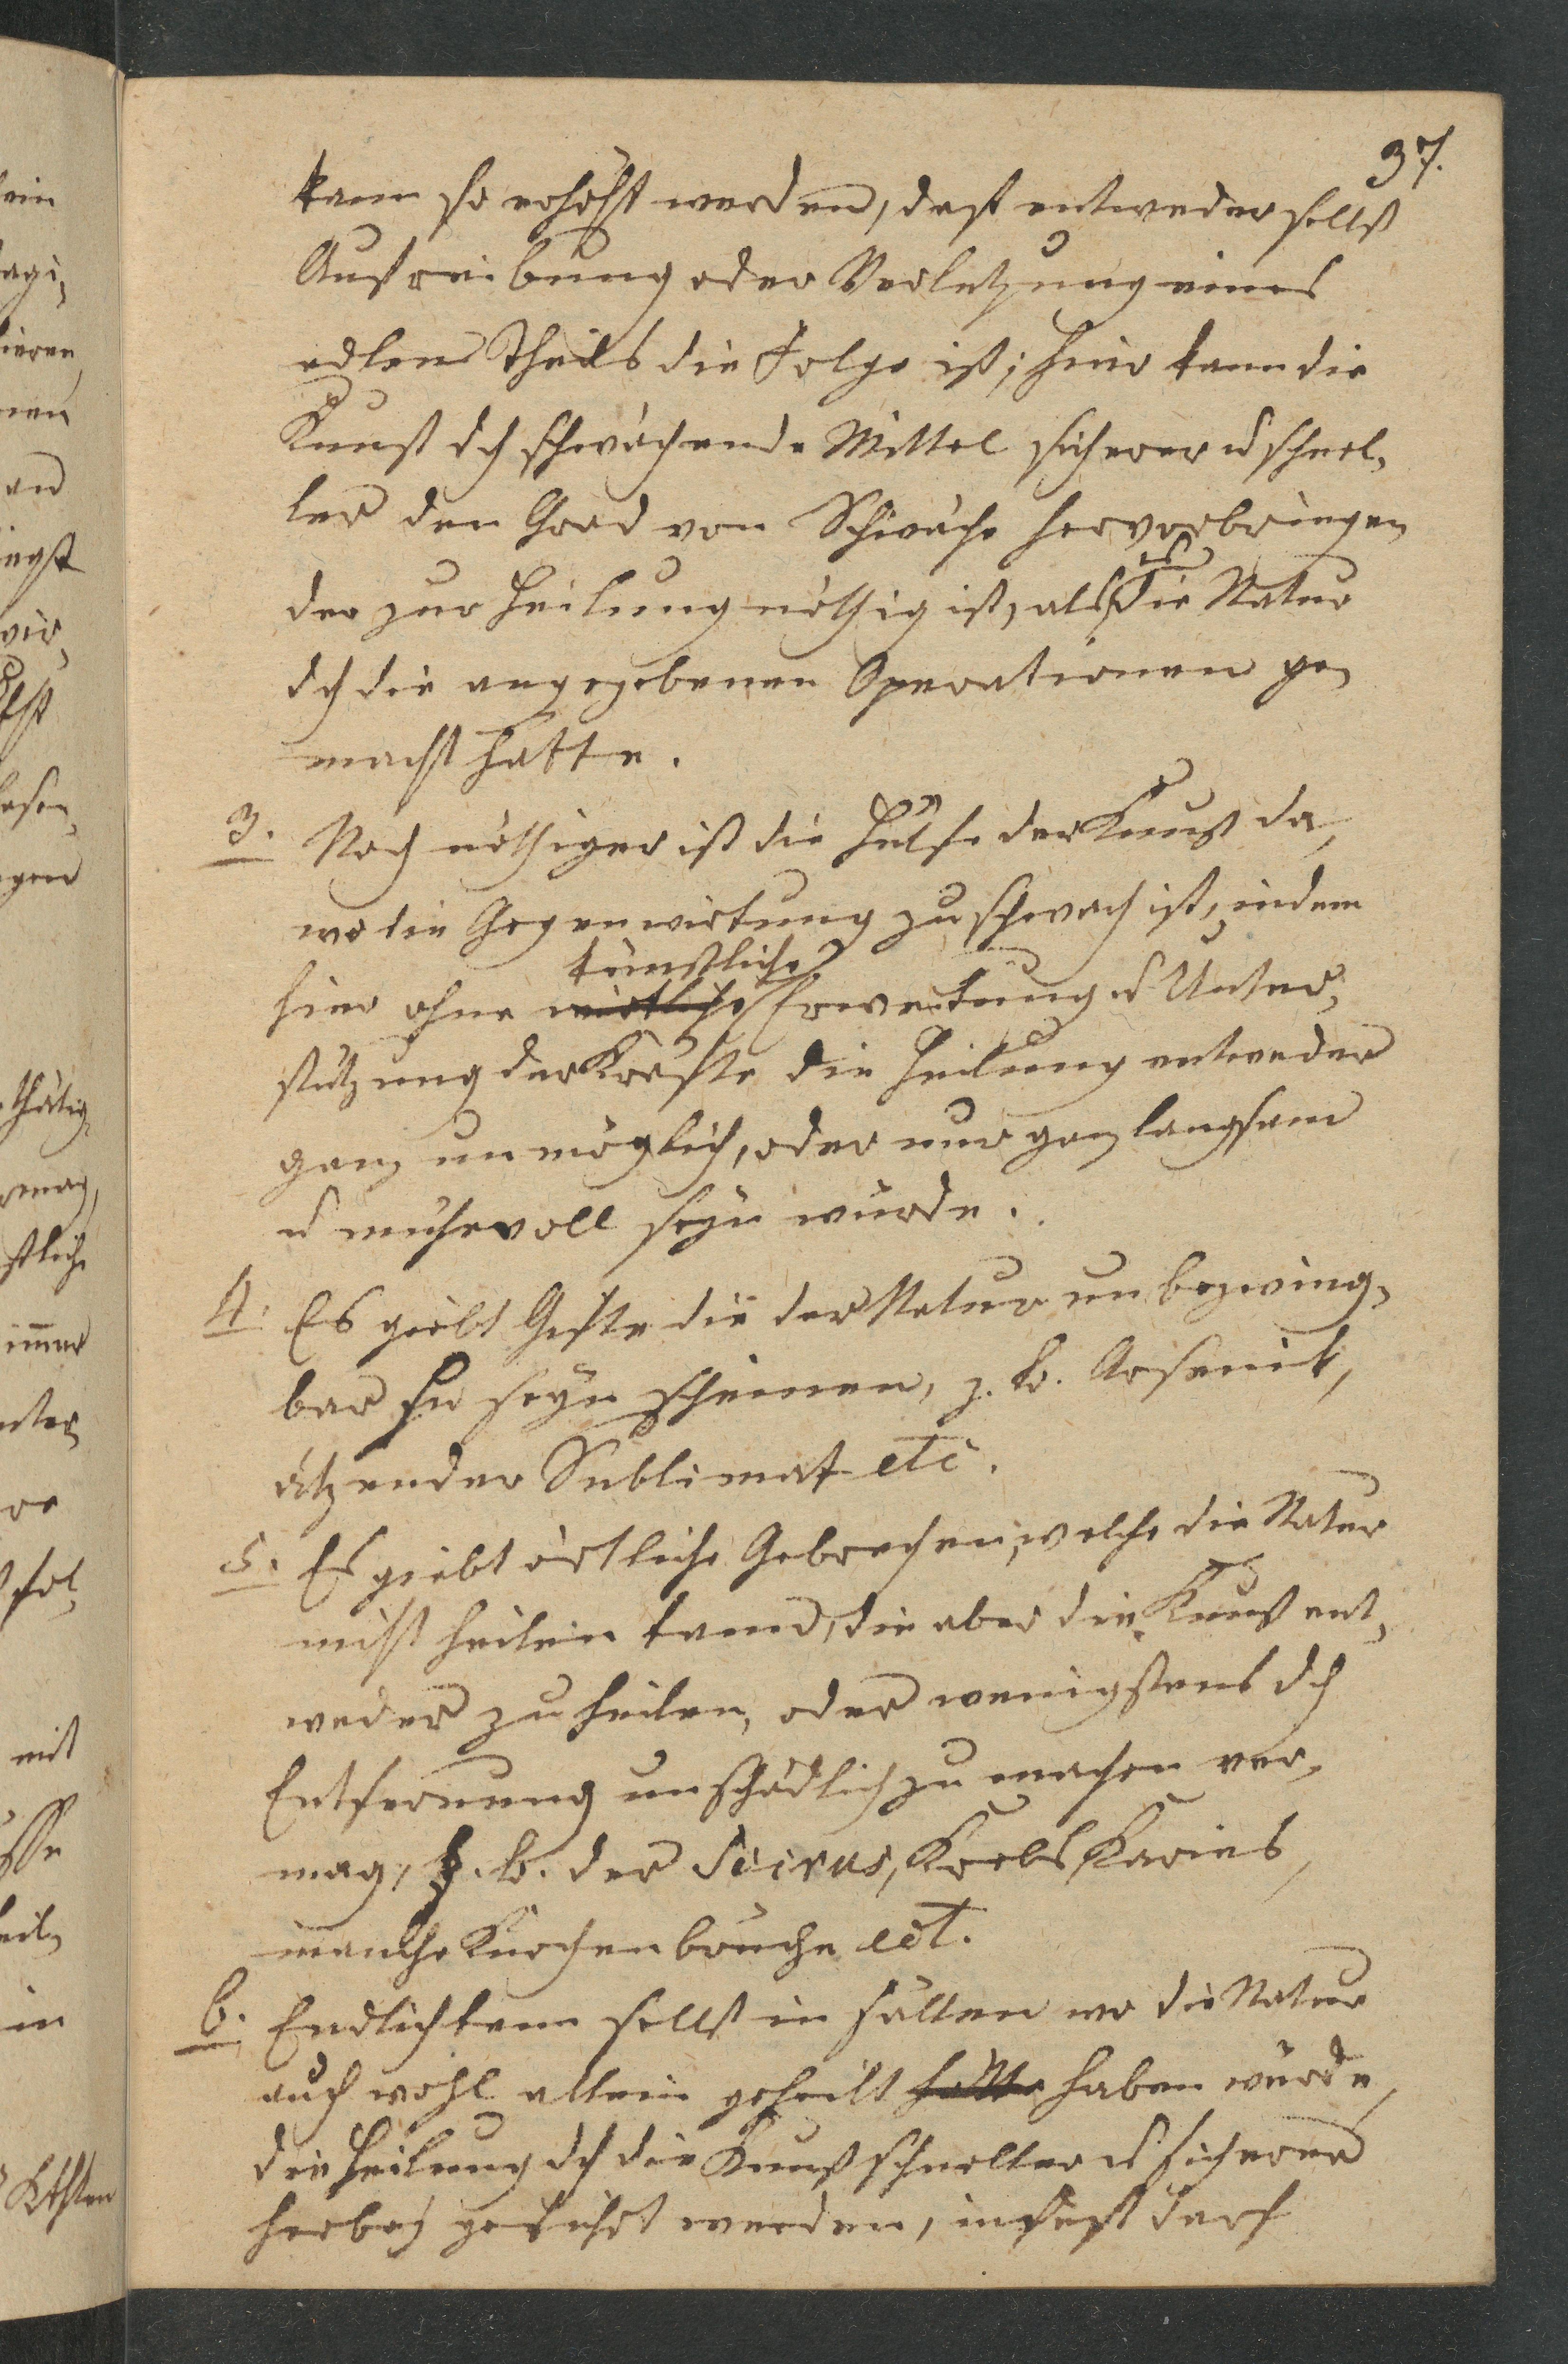 37.
kann so erhöht werden, dass entweder selbst
Aufreibung oder Verletzung eines
edlen Theils die Folge ist; hier kann die
Kunst dch schwächende Mittel sicherer u schnel-
ler den Grad von Schwäche hervorbringen
der zur Heilung nöthig ist, als es die Natur
dch die angegebenen Operationen ge-
macht hatte.
3. Noch nöthiger ist die Hülfe der Kunst da,
wo die Gegenwirkung zu schwach ist, indem
künstliche
hier ohne wirkliche Erweckung u Unter-
stützung der Kräfte die Heilung entweder
ganz unmöglich, oder nur ganz langsam
u mühevoll seyn würde.
4. Es giebt Gifte die der Natur unbezwing-
bar zu seyn scheinen, z. b. Arsenik,
ätzender Sublimat etc.
5. Es giebt örtliche Gebrechen, welche die Natur
nicht heilen kann, die aber die Kunst ent-
weder zu heilen, oder wenigstens dch
Entfernung unschädlich zu machen ver-
mag, z. b. der Scirus, Krebs, Karies,
manche Knochenbrüche ect.
6. Endlich kann selbst in Fällen wo die Natur
auch wohl allein geheilt hätte haben würde,
die Heilung dch die Kunst schneller u sicherer
herbey geführt werden, indess darf